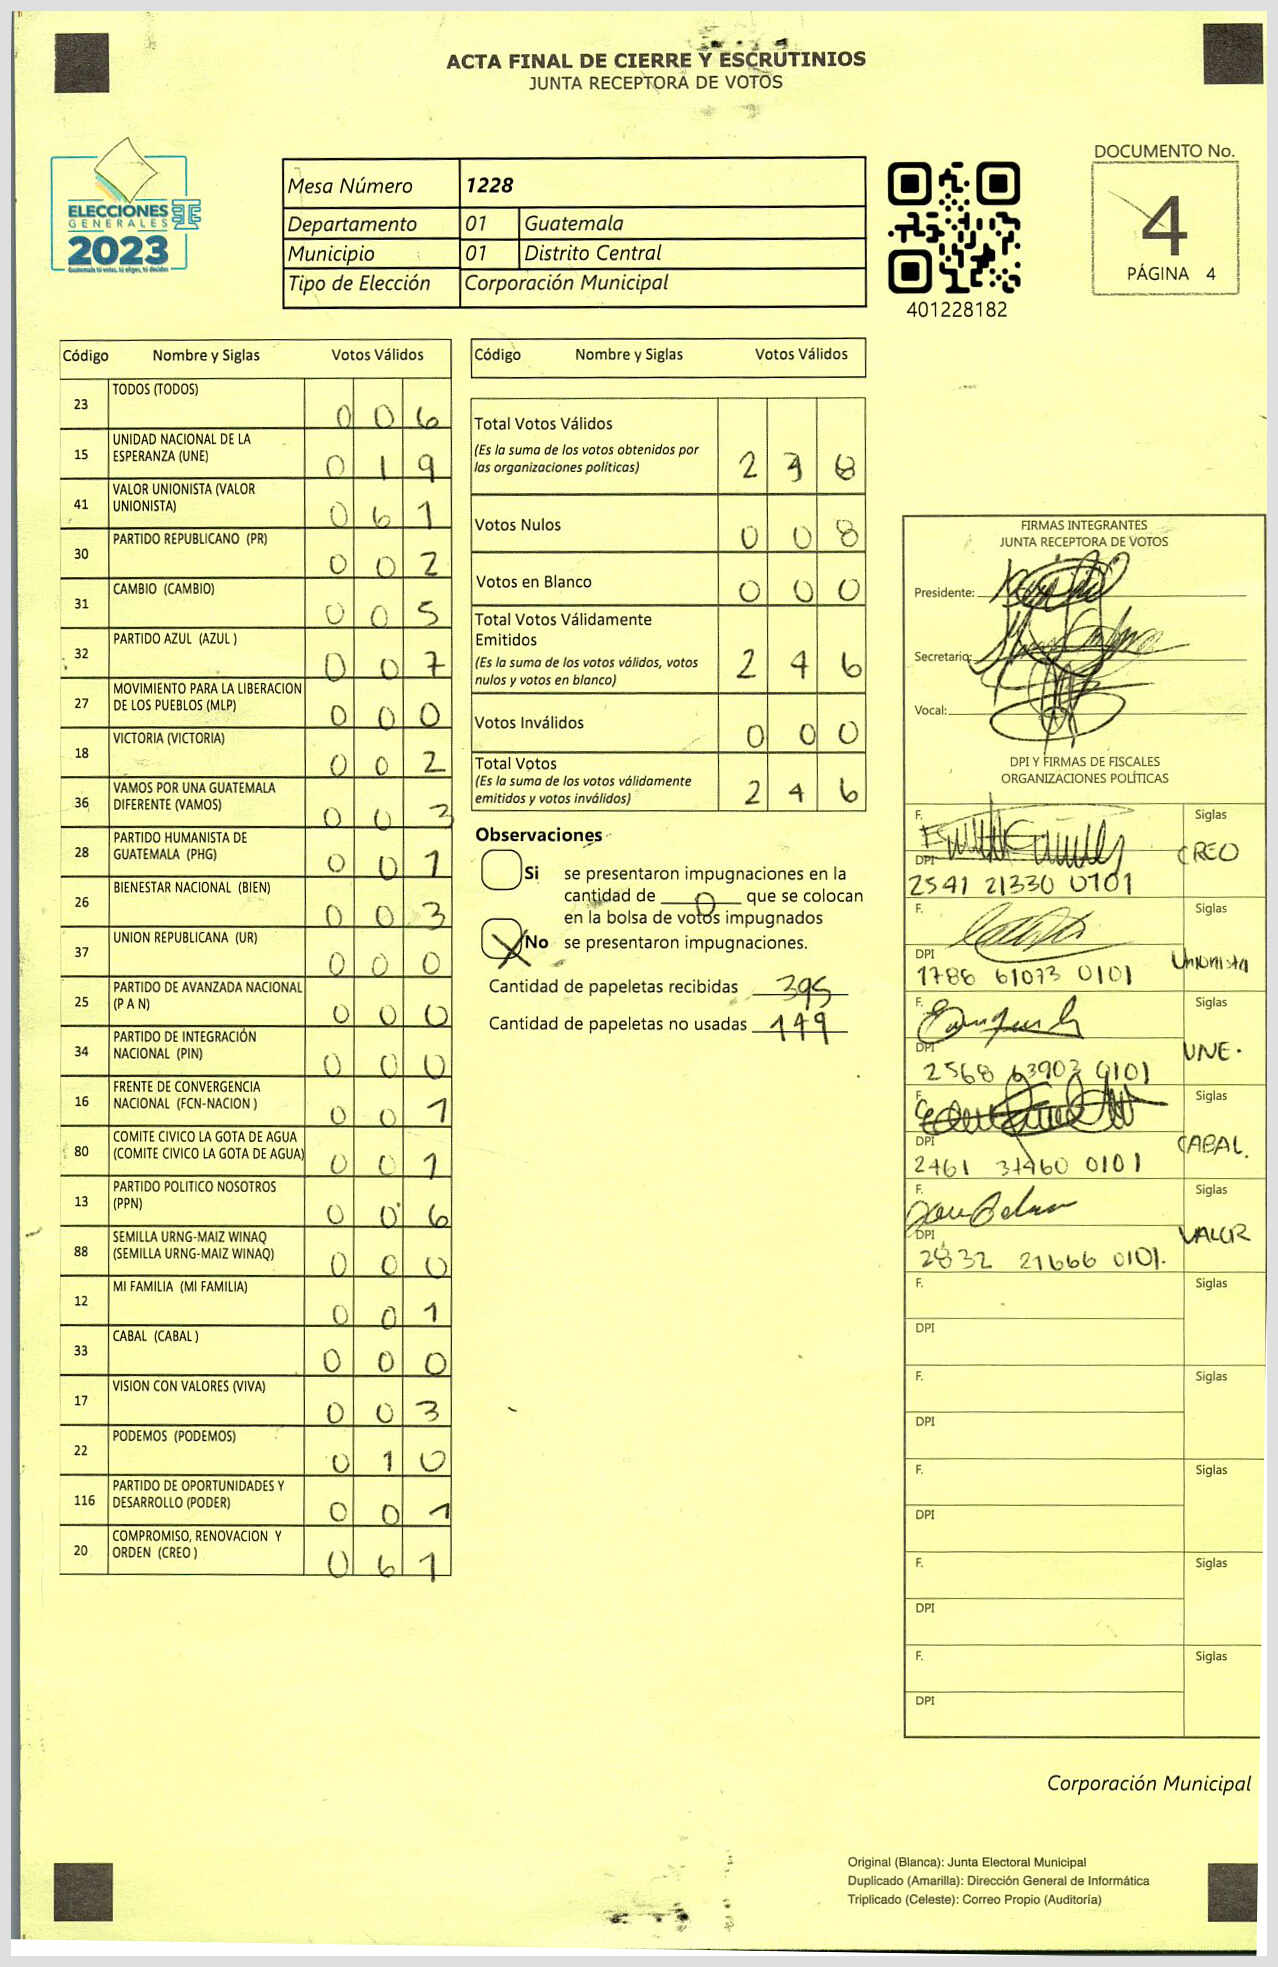 ACTA FINAL DE CIERRE Y ESCRUTINIOS
JUNTA RECEPTORA DE VOTOS
ELECCIONES
GENERALES
2023
Guatemala tú votas, tú eliges, tú decides
Mesa Número 1228
Departamento 01 Guatemala
Municipio 01 Distrito Central
Tipo de Elección Corporación Municipal
401228182
DOCUMENTO No.
4
PÁGINA 4
Código Nombre y Siglas Votos Válidos
23 TODOS (TODOS) 0 0 6
15 UNIDAD NACIONAL DE LA
ESPERANZA (UNE) 0 1 9
41 VALOR UNIONISTA (VALOR
UNIONISTA) 0 6 1
30 PARTIDO REPUBLICANO (PR) 0 0 2
31 CAMBIO (CAMBIO) 0 0 5
32 PARTIDO AZUL (AZUL ) 0 0 7
27 MOVIMIENTO PARA LA LIBERACION
DE LOS PUEBLOS (MLP) 0 0 0
18 VICTORIA (VICTORIA) 0 0 2
36 VAMOS POR UNA GUATEMALA
DIFERENTE (VAMOS) 0 0 3
28 PARTIDO HUMANISTA DE
GUATEMALA (PHG) 0 0 1
26 BIENESTAR NACIONAL (BIEN) 0 0 3
37 UNION REPUBLICANA (UR) 0 0 0
25 PARTIDO DE AVANZADA NACIONAL
(P A N) 0 0 0
34 PARTIDO DE INTEGRACIÓN
NACIONAL (PIN) 0 0 0
16 FRENTE DE CONVERGENCIA
NACIONAL (FCN-NACION ) 0 0 1
80 COMITE CIVICO LA GOTA DE AGUA
(COMITE CIVICO LA GOTA DE AGUA) 0 0 1
13 PARTIDO POLITICO NOSOTROS
(PPN) 0 0 6
88 SEMILLA URNG-MAIZ WINAQ
(SEMILLA URNG-MAIZ WINAQ) 0 0 0
12 MI FAMILIA (MI FAMILIA) 0 0 1
33 CABAL (CABAL ) 0 0 0
17 VISION CON VALORES (VIVA) 0 0 3
22 PODEMOS (PODEMOS) 0 1 0
116 PARTIDO DE OPORTUNIDADES Y
DESARROLLO (PODER) 0 0 1
20 COMPROMISO, RENOVACION Y
ORDEN (CREO ) 0 6 1
Código Nombre y Siglas Votos Válidos
Total Votos Válidos
(Es la suma de los votos obtenidos por
las organizaciones políticas) 2 3 8
Votos Nulos 0 0 8
Votos en Blanco 0 0 0
Total Votos Válidamente
Emitidos
(Es la suma de los votos válidos, votos
nulos y votos en blanco) 2 4 6
Votos Inválidos 0 0 0
Total Votos
(Es la suma de los votos válidamente
emitidos y votos inválidos) 2 4 6
Observaciones
Si se presentaron impugnaciones en la
cantidad de 0 que se colocan
en la bolsa de votos impugnados
No se presentaron impugnaciones.
Cantidad de papeletas recibidas 395
Cantidad de papeletas no usadas 149
FIRMAS INTEGRANTES
JUNTA RECEPTORA DE VOTOS
Presidente:
Secretario:
Vocal:
DPI Y FIRMAS DE FISCALES
ORGANIZACIONES POLÍTICAS
F. Siglas
CREO
DPI
2541 21330 0101
F. Siglas
DPI
1786 61073 0101 Unionista
F. Siglas
DPI UNE.
2568 63903 0101
F. Siglas
DPI CABAL.
2461 31460 0101
F. Siglas
DPI VALOR
2832 21666 0101.
F. Siglas
DPI
F. Siglas
DPI
F. Siglas
DPI
F. Siglas
DPI
F. Siglas
DPI
Corporación Municipal
Original (Blanca): Junta Electoral Municipal
Duplicado (Amarilla): Dirección General de Informática
Triplicado (Celeste): Correo Propio (Auditoría)